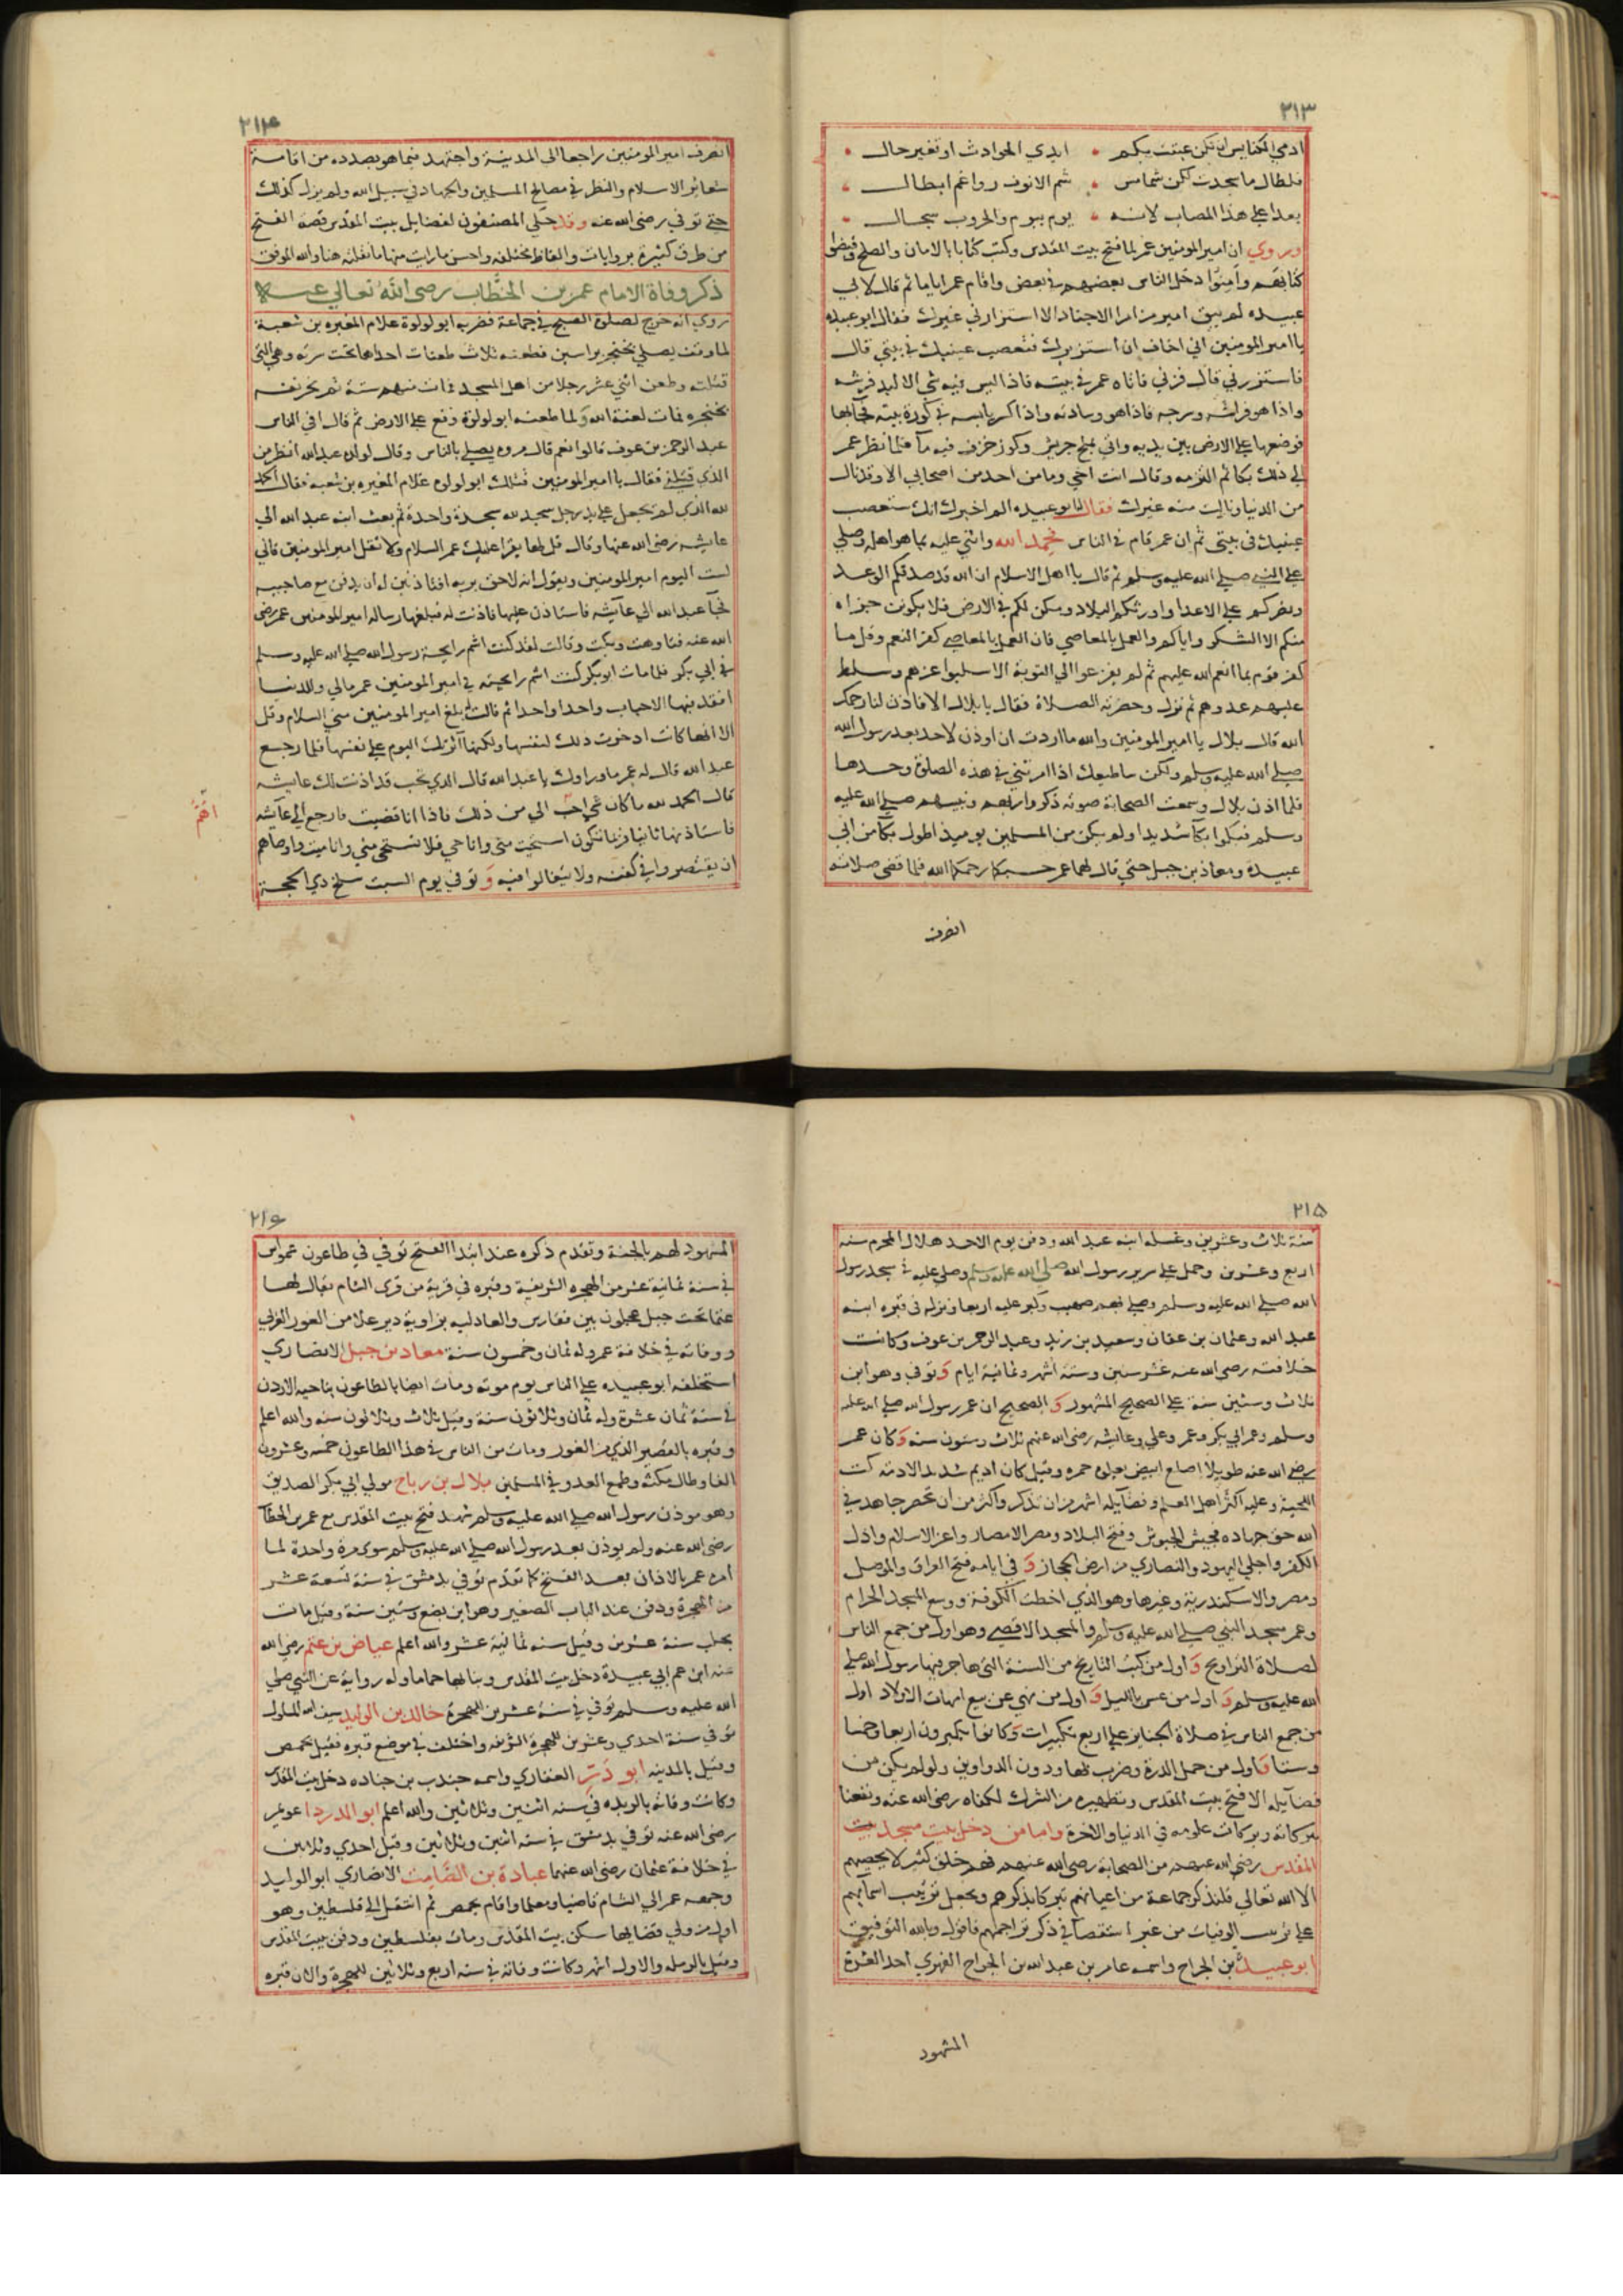 ٢١٣
ادمي الكنايس ان تكن عبثت بكم • ايدي الحوادث او تغير حال •
فلطال ما سجدت لكن شمامس • شم الانوف رواغم ابطال •
بعدا على هذا المصاب لانه • يوم بيوم والحروب سجال •
وروي ان امير المومنين عمر لما فتح بيت المقدس وكتب كتابا بالامان والصلح وقبضوا
كتابهم وآمنوا دخل الناس بعضهم في بعض واقام عمر اياما ثم قال لابي
عبيدة لم يبق امير من امرا الاجناد الا استزارني غيرك فقال ابو عبيدة
يا امير المومنين اني اخاف ان استزيرك فتعصب عينيك في بيتي قال
فاستزرني قال فزرني فاتاه عمر في بيته فاذا ليس فيه شي الا لبد فرشه
واذا هو فراشه وسرجه فاذا هو وسادته واذا كسر يابسة في كوة بيته فجا بها
فوضعها على الارض بين يديه واتي بملح جريش وكوز خزف فيه ما فلما نظر عمر
الي ذلك بكا ثم التزمه وقال انت اخي وما من احد من اصحابي الا وقد نال
من الدنيا ونالت منه غيرك فقال له ابو عبيدة الم اخبرك انك ستعصب
عينيك في بيتي ثم ان عمر قام في الناس فحمد الله واثني عليه بما هو اهله وصلي
علي النبي صلي الله عليه وسلم ثم قال يا اهل الاسلام ان الله قد صدقكم الوعد
ونصركم علي الاعدا واورثكم البلاد ومكن لكم في الارض فلا يكونن جزاه
منكم الا الشكر واياكم والعمل بالمعاصي فان العمل بالمعاصي كفر النعم وقل ما
كفر قوم بما انعم الله عليهم ثم لم يفزعوا الي التوبة الا سلبوا عزهم وسلط
عليهم عدوهم ثم نزل وحضرت الصلاة فقال يا بلال الا فاذن لنا رحمك
الله قال بلال يا امير المومنين والله ما اردت ان اوذن لاحد بعد رسول الله
صلي الله عليه وسلم ولكن ساطيعك اذا امرتني في هذه الصلوة وحدها
فلما اذن بلال وسمعت الصحابة صوته ذكروا ربهم ونبيهم صلي الله عليه
وسلم فبكوا بكآ شديدا ولم يكن من المسلمين يوميذ اطول بكآ من ابي
عبيدة ومعاذ بن جبل حتي قال لهما عمر حسبكما رحمكما الله فلما قضي صلاته
انصرف
٢١٤
انصرف امير المومنين راجعا الي المدينة واجتهد فيما هو بصدده من اقامة
شعاير الاسلام والنظر في مصالح المسلمين والجهاد في سبيل الله ولم يزل كذلك
حتي توفي رضي الله عنه وقد حكي المصنفون لفضايل بيت المقدس قصة الفتح
من طرق كثيرة بروايات والفاظ مختلفة واحسن ما رايت منها ما نقلته هنا والله الموفق
ذكر وفاة الامام عمر بن الخطاب رضي الله تعالي عنه
روي انه خرج لصلوة الصبح في جماعة فضربه ابو لولوة غلام المغيرة بن شعبة
لما وقف يصلي بخنجر براسين فطعنه ثلاث طعنات احداها تحت سرته وهي التي
قتلته وطعن اثني عشر رجلا من اهل المسجد فمات منهم ستة ثم نحر نفسه
بخنجره فمات لعنه الله ولما طعنه ابو لولوة وقع علي الارض ثم قال افي الناس
عبد الرحمن بن عوف قالوا نعم قال مروه يصلي بالناس وقال لولده عبد الله انظر من
الذي قتلني فقال يا امير المومنين قتلك ابو لولوة غلام المغيرة بن شعبه فقال الحمد
لله الذي لم يجعل علي يد رجل سجد لله سجدة واحدة ثم بعث ابنه عبد الله الي
عايشه رضي الله عنها وقال قل لها يقرا عليك عمر السلام ولا تقل امير المومنين فاني
لست اليوم امير المومنين ويقول انه لاحق بربه افتاذنين له ان يدفن مع صاحبيه
فجآ عبد الله الي عآيشه فاستاذن عليها فاذنت له فبلغها رسالة امير المومنين عمر رضي
الله عنه فتاوهت وبكت وقالت لقد كنت اشم رايحة رسول الله صلي الله عليه وسلم
في ابي بكر فلما مات ابو بكر كنت اشم رايحته في امير المومنين عمر مالي وللدنيا
افقد فيها الاحباب واحدا واحدا ثم قالت ابلغ امير المومنين مني السلام وقل
الا انها كانت ادخرت ذلك لنفسها ولكنها آثرتك اليوم علي نفسها فلما رجع
عبد الله قال له عمر ما وراوك يا عبد الله قال الذي تحب قد اذنت لك عايشه
قال الحمد لله ما كان شي احب الي من ذلك فاذا انا قضيت فارجع الي عآيشه
اهم
فاستاذنها ثانيا فربما تكون استحيت مني وانا حي فلا تستحي مني وانا ميت واوصاهم
ان يقتصروا في كفنه ولا يتغالوا فيه وتوفي يوم السبت سلخ ذي الحجة
٢١٥
سنة ثلاث وعشرين وغسله ابنه عبد الله ودفن يوم الاحد هلال المحرم سنة
اربع وعشرين وحمل علي سرير رسول الله صلي الله عليه وسلم وصلي عليه في مسجد رسول
الله صلي الله عليه وسلم وصلي بهم صهيب وكبر عليه اربعا ونزل في قبره ابنه
عبد الله وعثمان بن عفان وسعيد بن زيد وعبد الرحمن بن عوف وكانت
خلافته رضي الله عنه عشر سنين وستة اشهر وثمانية ايام وتوفي وهو ابن
ثلاث وستين سنة علي الصحيح المشهور و الصحيح ان عمر رسول الله صلي الله عليه
وسلم وعمر ابي بكر وعمر وعلي وعايشه رضي الله عنهم ثلاث وستون سنه وكان عمر
رضي الله عنه طويلا اصلع ابيض يعلوه حمرة وقيل كان اديم شديد الادمة كث
اللحية وعليه اكثر اهل العلم وفضايله اشهر من ان تذكر واكثر من ان تحصر جاهد في
الله حق جهاده فجيش الجيوش وفتح البلاد ومصر الامصار واعز الاسلام واذل
الكفر واجلي اليهود والنصاري من ارض الحجاز و في ايامه فتح العراق والموصل
ومصر والاسكندرية وغيرها وهو الذي اخطت الكوفة ووسع المسجد الحرام
وعمر مسجد النبي صلي الله عليه وسلم والمسجد الاقصي وهو اول من جمع الناس
لصلاة التراويح و اول من كتب التاريخ من السنة التي هاجر فيها رسول الله صلي
الله عليه وسلم و اول من عس بالليل و اول من نهي عن بيع امهات الاولاد اول
من جمع الناس في صلاة الجنايز علي اربع تكبيرات وكانوا يكبرون اربعا وخمسا
وستا واول من حمل الدرة وضرب بها ودون الدواوين ولو لم يكن من
فضآيله الا فتح بيت المقدس وتطهيره من الشرك لكفاه رضي الله عنه ونفعنا
ببركاته وبركات علومه في الدنيا والاخرة واما من دخل بيت مسجد بيت
المقدس رضي الله عنهم من الصحابة رضي الله عنهم فهم خلق كثير لا يحصيهم
الا الله تعالي فلنذكر جماعة من اعيانهم تبركا بذكرهم ويجعل ترتيب اسمآيهم
علي ترتيب الوفيات من غير استقصآ في ذكر تراجمهم فاقول وبالله التوفيق
ابو عبيدة بن الجراح واسمه عامر بن عبد الله بن الجراح الفهري احد العشرة
المشهود
٢١٦
المشهود لهم بالجنة وتقدم ذكره عند ابتدا الفتح توفي في طاعون عمواس
في سنة ثمانية عشر من الهجرة الشريفة وقبره في قرية من قري الشام يقال لها
عمتا تحت جبل عجلون بين فقارس والعادلية بزاوية دير علا من الغور الغربي
ووفاته في خلافة عمر وله ثمان وخمسون سنة معاذ بن جبل الانصاري
استخلفه ابو عبيدة علي الناس يوم موته ومات ايضا بالطاعون بناحية الاردن
في سنة ثمان عشرة وله ثمان وثلاثون سنة وقيل ثلاث وثلاثون سنه والله اعلم
وقبره بالقصير الذي من الغور ومات من الناس في هذا الطاعون خمسه وعشرون
الفا وطال مكثه وطمع العدو في المسلمين بلال بن رباح مولي ابي بكر الصديق
وهو موذن رسول الله صلي الله عليه وسلم شهد فتح بيت المقدس مع عمر بن الخطاب
رضي الله عنه ولم يوذن بعد رسول الله صلي الله عليه وسلم سوي مرة واحدة لما
امره عمر بالاذان بعد الفتح كما تقدم توفي بدمشق في سنة تسعة عشر
من الهجرة ودفن عند الباب الصغير وهو ابن بضع وستين سنة وقيل مات
بحلب سنة عشرين وقيل سنه ثمانية عشر والله اعلم عياض بن غنم رضي الله
عنه ابن عم ابي عبيدة دخل بيت المقدس وبنا بها حماما وله رواية عن النبي صلي
الله عليه وسلم توفي في سنة عشرين للهجرة خالد بن الوليد سيف الله المسلول
توفي سنة احدي وعشرين للهجرة الشريفة واختلف في موضع قبره فقيل بحمص
وقيل بالمدينه ابو ذر الغفاري واسمه جندب بن جناده دخل بيت المقدس
وكانت وفاته بالربذه في سنه اثنين وثلاثين والله اعلم ابو الدردا عويمر
رضي الله عنه توفي بدمشق في سنه اثنين وثلاثين وقيل احدي وثلاثين
في خلافة عثمان رضي الله عنهما عبادة بن الصامت الانصاري ابو الوليد
وجهه عمر الي الشام قاضيا ومعلما واقام بحمص ثم انتقل الي فلسطين وهو
اول من ولي قضايها سكن بيت المقدس ومات بفلسطين ودفن ببيت المقدس
وقيل بالرملة والاول اشهر وكانت وفاته في سنه اربع وثلاثين للهجرة والان قبره